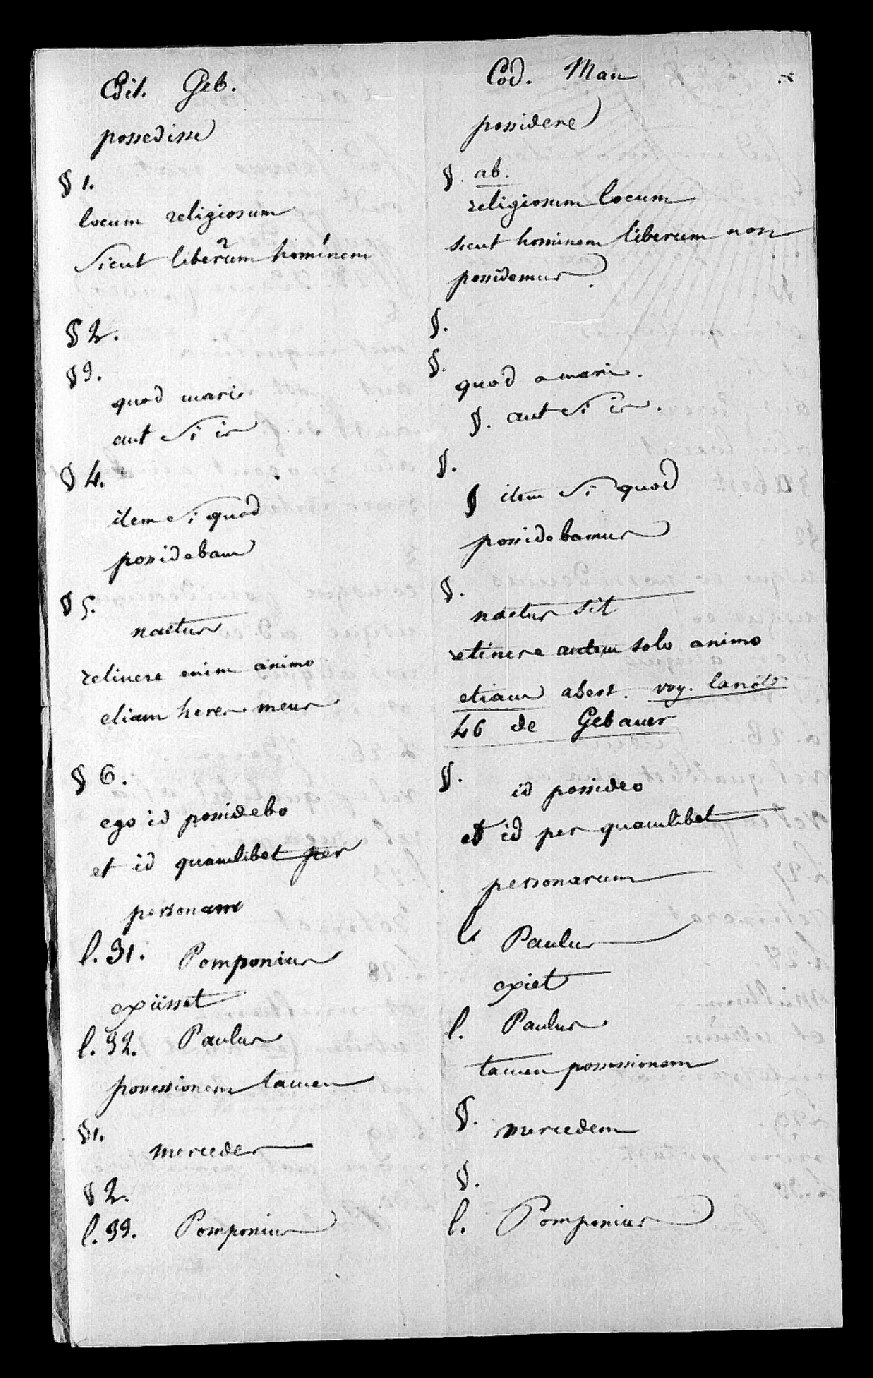 Edit. Geb.
possedisse
§ 1.
locum religiosum
sicut liberum hominem
§ 2.
§ 3.
quod maris
aut si is
§ 4.
item si quod
possidebam
§ 5.
nactus
retinere enim animo
etiam heres meus
§ 6.
ego id possidebo
et id quamlibet per
personam
l. 31. Pomponius
exiisset
l. 32. Paulus
possessionem tamen
§ 1.
mercedes
§ 2.
l. 33. Pomponius
Cod. Man
possidere
§. ab.
religiosum locum
sicut hominem liberum non
possidemus
§.
§.
quod a mari.
§. aut si is.
§.
§ item si quod
possidebamus
§.
nactus sit
retinere autem solo animo
etiam abest. voy.
46 de Gebauer
§.
id possideo
et id per quamlibet
personarum
l. Paulus
exiet
l. Paulus
tamen possessionem
§.
mercedem
§.
l. Pomponius